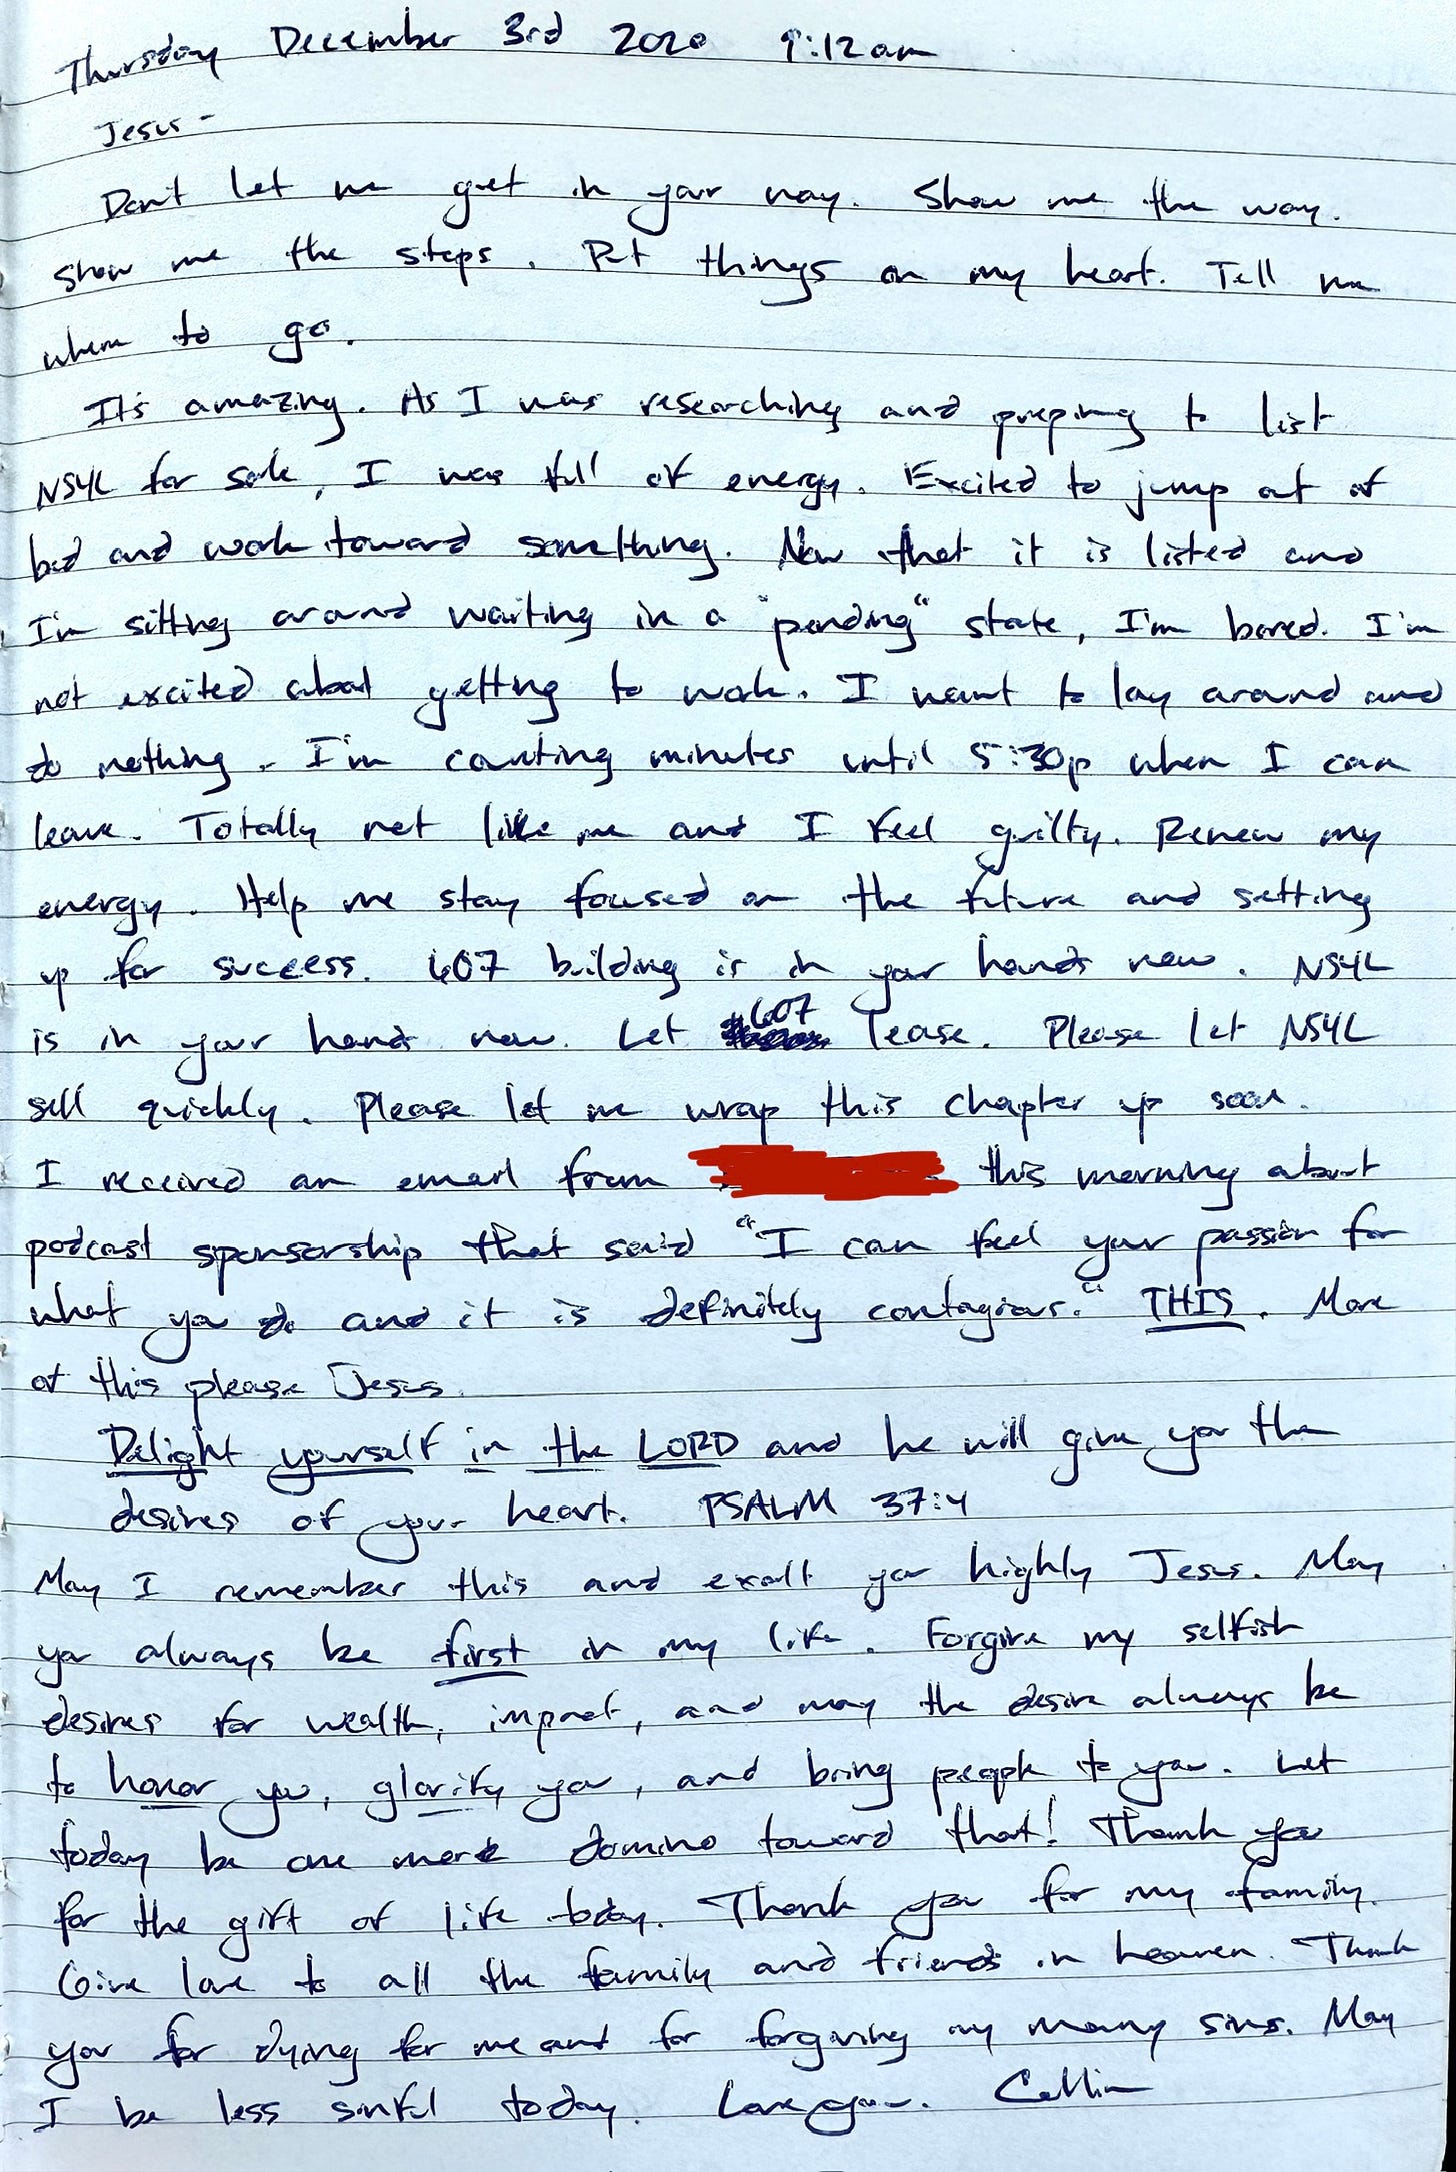 Thursday December 3rd 2020 9:12am
Jesus -
Don't let me get in your way. Show me the way.
Show me the steps. Put things on my heart. Tell me
where to go.
It's amazing. As I was researching and preping to list
NS4L for sale, I was full of energy. Excited to jump out of
bed and work toward something. Now that it is listed and
I'm sitting around waiting in a "pending" state, I'm bored. I'm
not excited about getting to work. I want to lay around and
do nothing. I'm counting minutes until 5:30p when I can
leave. Totally not like me and I feel guilty. Renew my
energy. Help me stay focused on the future and setting
up for success. 607 building is in your hands now. NS4L
is in your hands now. Let 607 lease. Please let NS4L
sell quickly. Please let me wrap this chapter up soon.
I received an email from this morning about
podcast sponsorship that said "I can feel your passion for
what you do and it is definitely contagious." THIS. More
of this please Jesus.
Delight yourself in the LORD and he will give you the
desires of your heart. PSALM 37:4
May I remember this and exalt you highly Jesus. May
you always be first in my life. Forgive my selfish
desires for wealth, impact, and may the desire always be
to honor you, glorify you, and bring people to you. Let
today be one more domino toward that! Thank you
for the gift of life today. Thank you for my family.
Give love to all the family and friends in heaven. Thank
you for dying for me and for forgiving my many sins. May
I be less sinful today. Love you. Collin